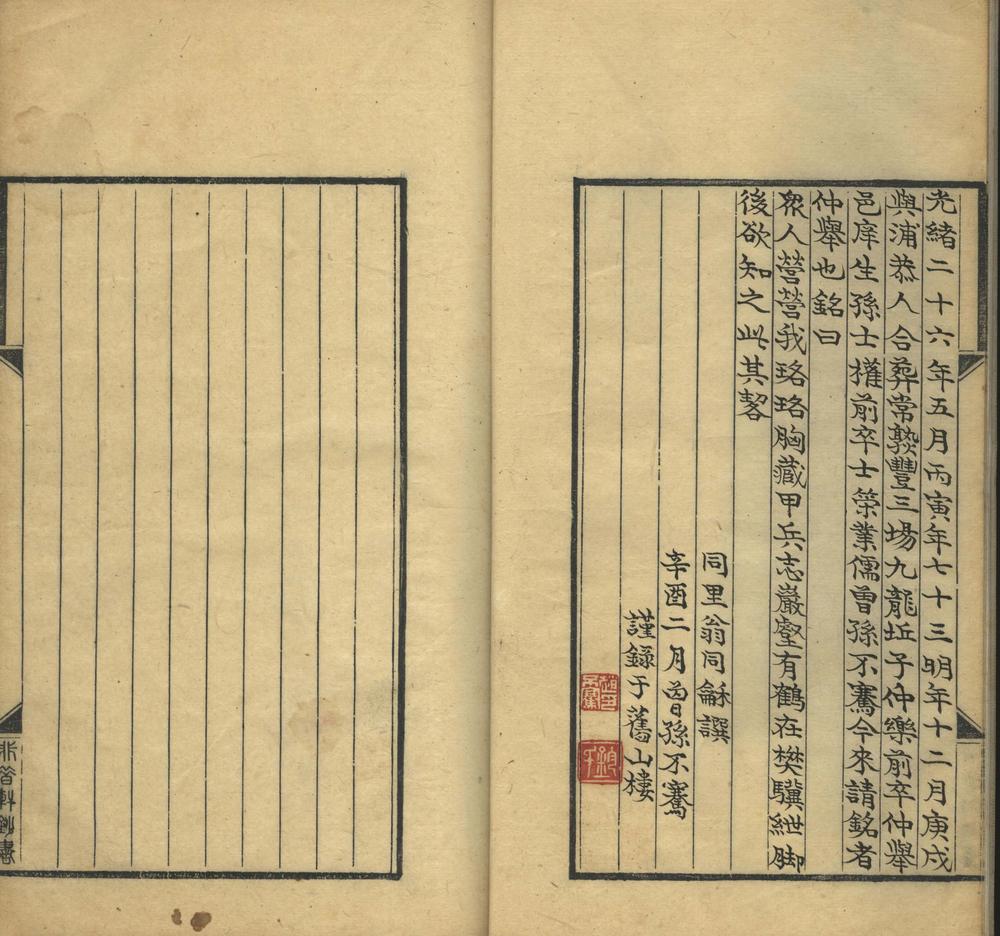 光緒二十六年五月丙寅年七十三明年十二月庚戌
與浦恭人合葬常熟豐三場九龍坵子仲樂前卒仲舉
邑庠生孫士權前卒士榮業儒曾孫不騫今來請銘者
仲舉也銘曰
眾人營營我珞珞胸藏甲兵志巖壑有鶴在樊驥紲脚
後欲知之此其𥿊
同里翁同龢譔
辛酉二月曾孫不騫
謹錄于舊山樓